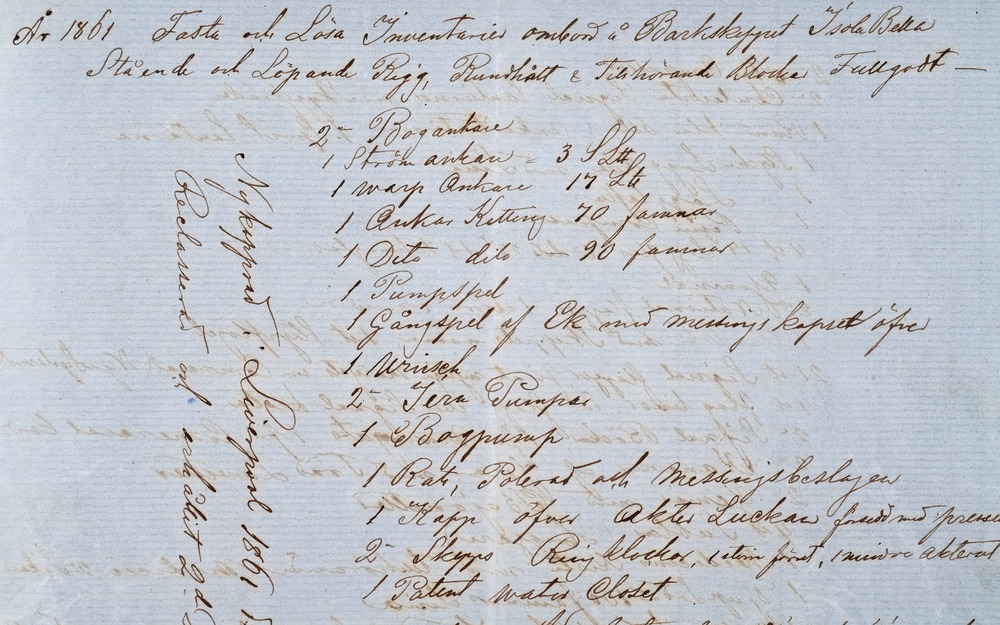 År 1861 Fasta och Lösa Inventarier ombord å Barkskeppet Isola Bella
Stående och Löpande Rigg, Rundhållt & Tillhörande Blocker Fullgodt —
2 Bogankare
1 Ström ankare = 3 S Ltt
1 warp Ankare 17 Ltt
1 Ankar Ketting 70 famnar
1 Dito dito — 90 famnar
1 Pumpspel
1 Gångspel af Ek med messings kapsel öfver
1 Winsch
2 Jern Pumpar
1 Bogpump
1 Ratt, Polerad och Messingsbeslagen
1 Kapp öfver Akter Luckan försedd med
2 Skepps Ringklockor, 1 stor förut, 1 mindre akterut
1 Patent water Closet
Nykoppad i Liverpool 1861
Reclasserad och erhållit 2d